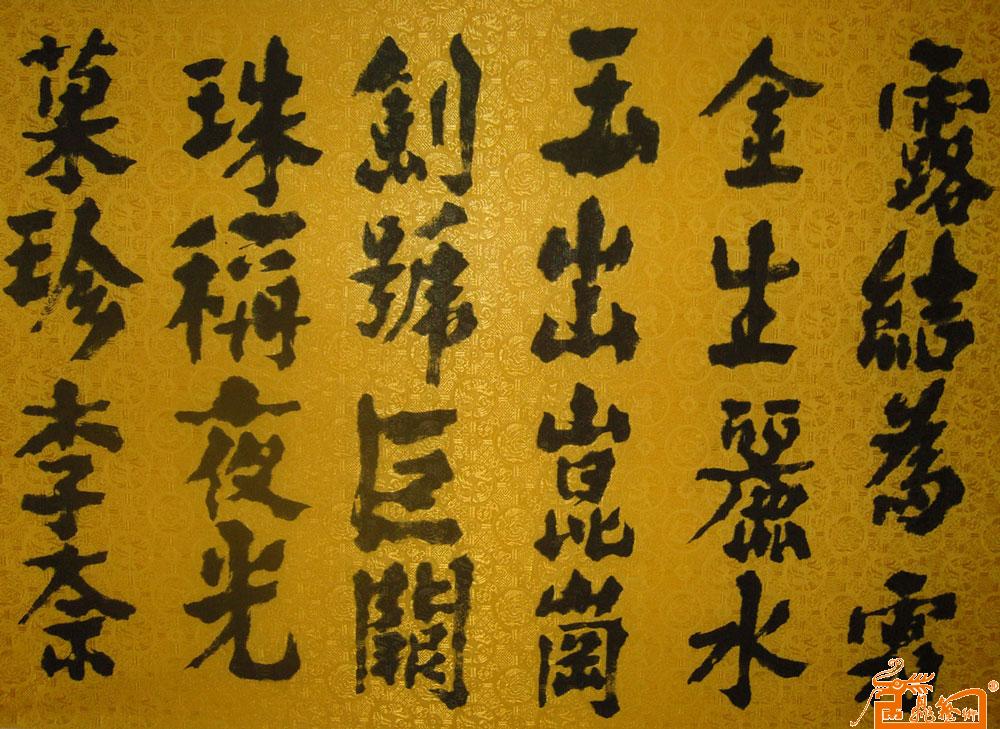 露結為霜
金生麗水
玉出崑崗
劍號巨闕
珠稱夜光
菓珍李柰